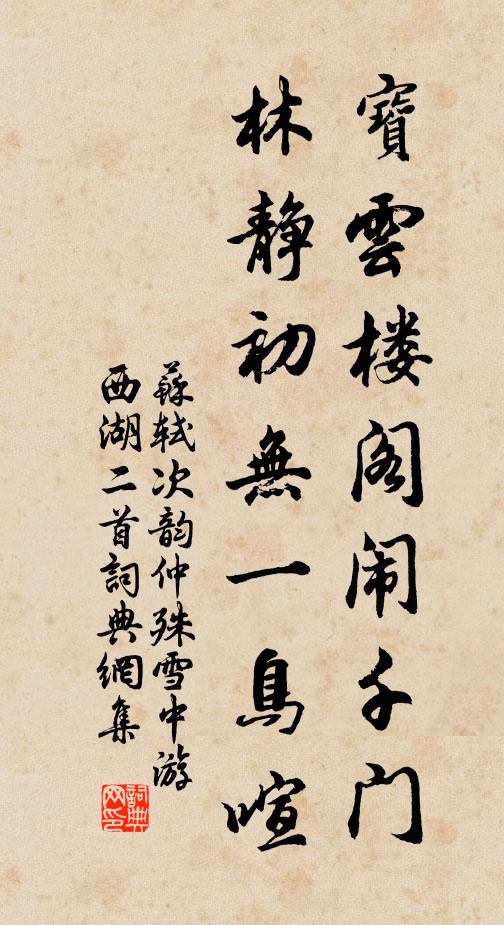 寶雲楼阁闹千门
林静初無一鳥喧
蘇軾次韵仲殊雪中游
西湖二首詞典網集
詞典
网印